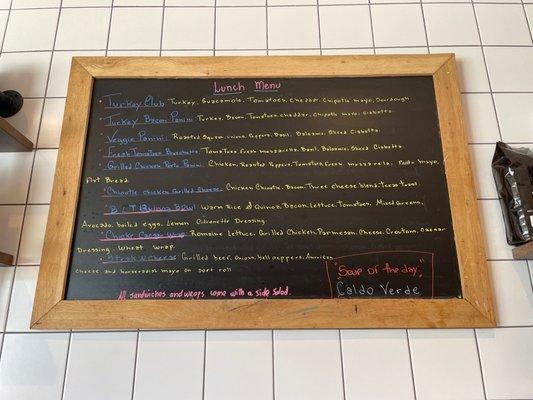 Lunch Menu
Turkey Club Turkey, Guacamole, Tomatoes, cheddar, chipotle mayo, Sourdough.
Turkey Bacon Panini Turkey, Bacon, Tomatoes, Cheddar, Chipotle mayo, Ciabatta.
Veggie Panini Roasted Squash, onions, Peppers, Basil, Balsamic, Sliced Ciabatta.
Fresh Tomatoes Panini Tomatoes, fresh mozzarella, Basil, Balsamic, Sliced Ciabatta.
Grilled Chicken Pesto Panini Chicken, Roasted Peppers, Tomatoes, fresh mozzarela, Pesto mayo,
Flat Bread
Chipotle chicken Grilled Cheese Chicken Chipotle, Bacon, Three cheese blend, texas toast.
B.L.T Quinoa Bowl Warm Rice & Quinoa, Bacon, Lettuce, tomatoes, Mixed Greens,
Avocado, boiled eggs, Lemon Dressing.
Wrap Romaine Lettuce, Grilled Chicken, Parmesan, Cheese, Croutons,
Dressing, Wheat wrap.
Steak N Cheese Grilled beef, Onions, bell peppers, American
Cheese and horseradish mayo on soft roll
All sandwiches and wraps come with a side salad.
"Soup of the day"
Caldo Verde